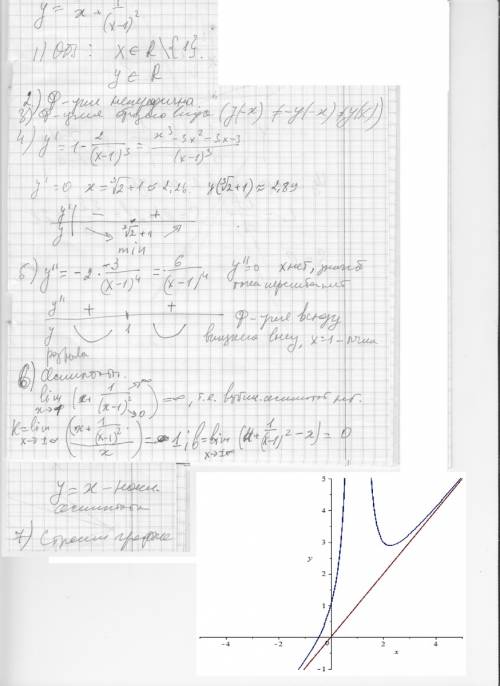 y = x + 1/(x-1)²
1) ООФ: x ∈ R\{1}.
y ∈ R
2) Ф-ция непериодична
3) Ф-ция общего вида (y(-x) ≠ -y(-x) ≠ y(x))
4) y' = 1 - 2/(x-1)³ = (x³-3x²-3x-3)/(x-1)³
y' = 0 x = ∛2+1 ≈ 2,26. y(∛2+1) ≈ 2,89
y' - +
y ∛2+1
min
5) y'' = -2·(-3)/(x-1)⁴ = 6/(x-1)⁴ y''=0 x нет, значит
точек перегиба нет
y'' + +
y 1 Ф-ция всюду
выпукла вниз, x=1 - точка
разрыва
6) Асимптоты.
lim x→1 (x + 1/(x-1)²) = ∞, т.е.
→∞
→0
k = lim x→±∞ ((x + 1/(x-1)²)/x) = 1; b = lim x→±∞ (x + 1/(x-1)² - x) = 0
y = x - накл.
асимптота
7) Строим график
5
4
3
y
2
1
-4 -2 0 2 4
x
-1